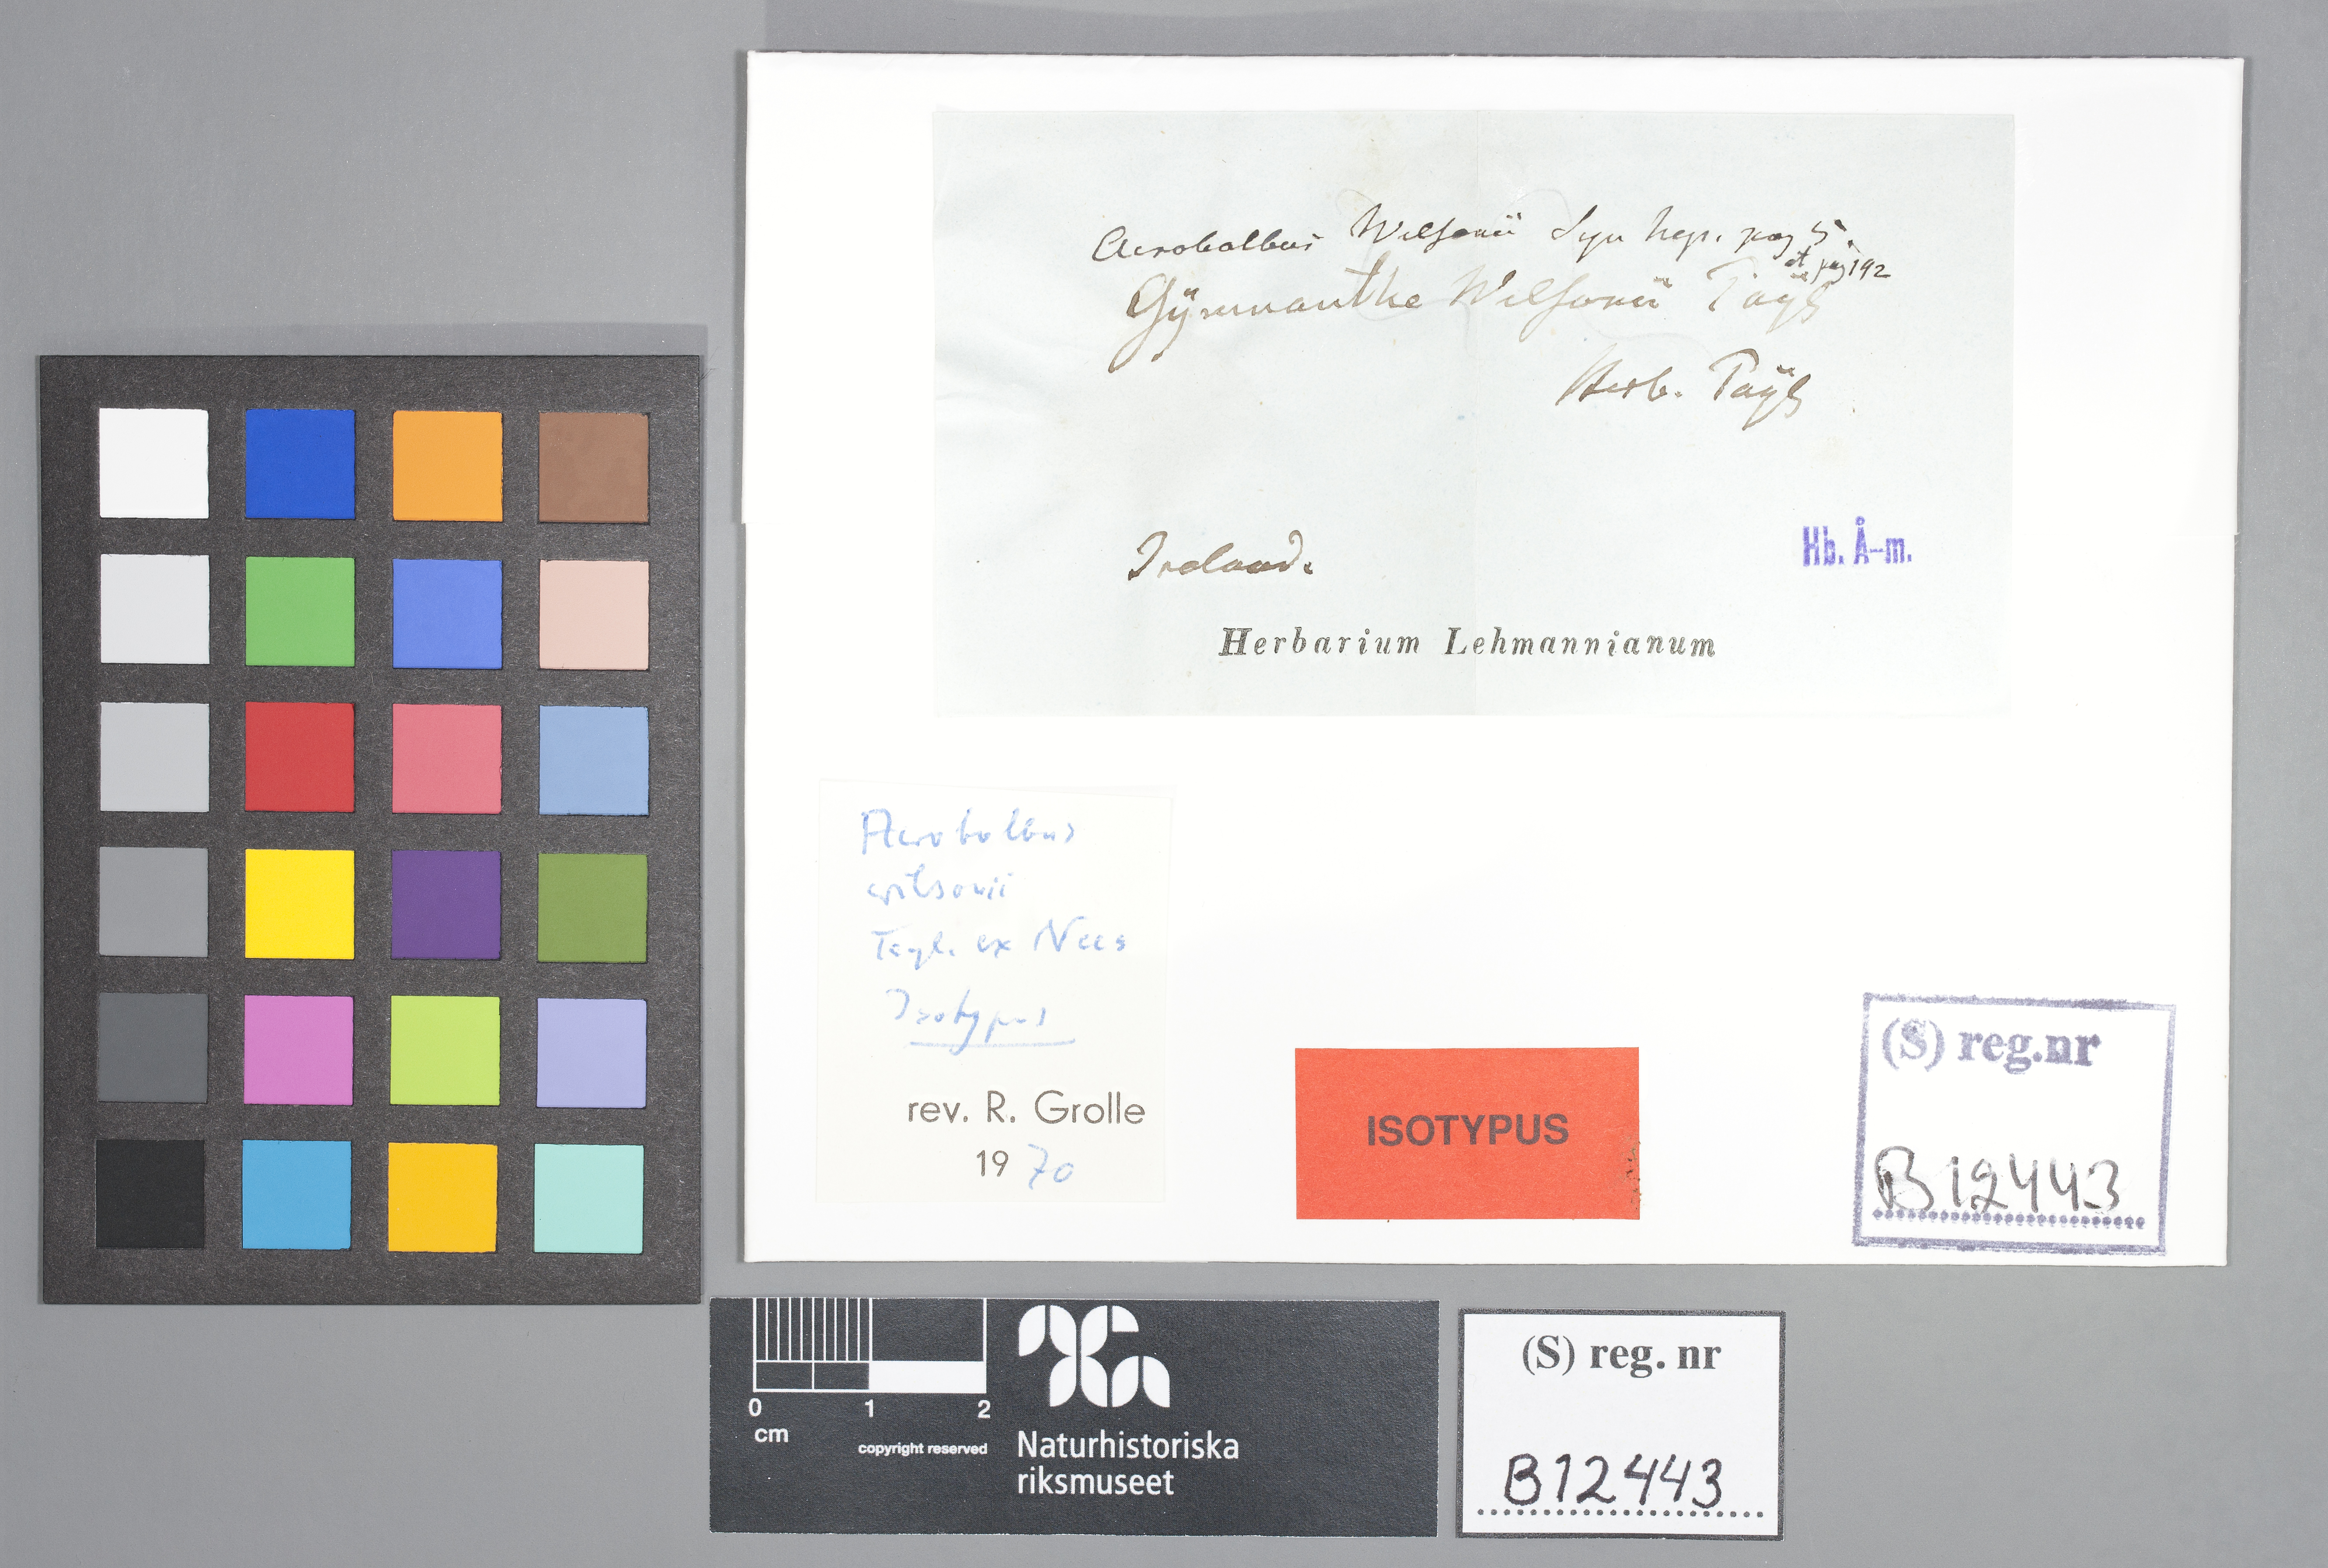 Acrobolbus Wilsonii Syn hep. pag 5.
et pag 192
Gÿmnanthe Wilsonii Taÿl
Herb. Taÿl
Ireland.
Hb. Å-m.
Herbarium Lehmannianum
Acrobolbus
wilsonii
Tayl. ex Nees
Isotypus
rev. R. Grolle
1970
ISOTYPUS
(S) reg.nr
B12443
0 1 2
cm
copyright reserved
Naturhistoriska
riksmuseet
(S) reg. nr
B12443